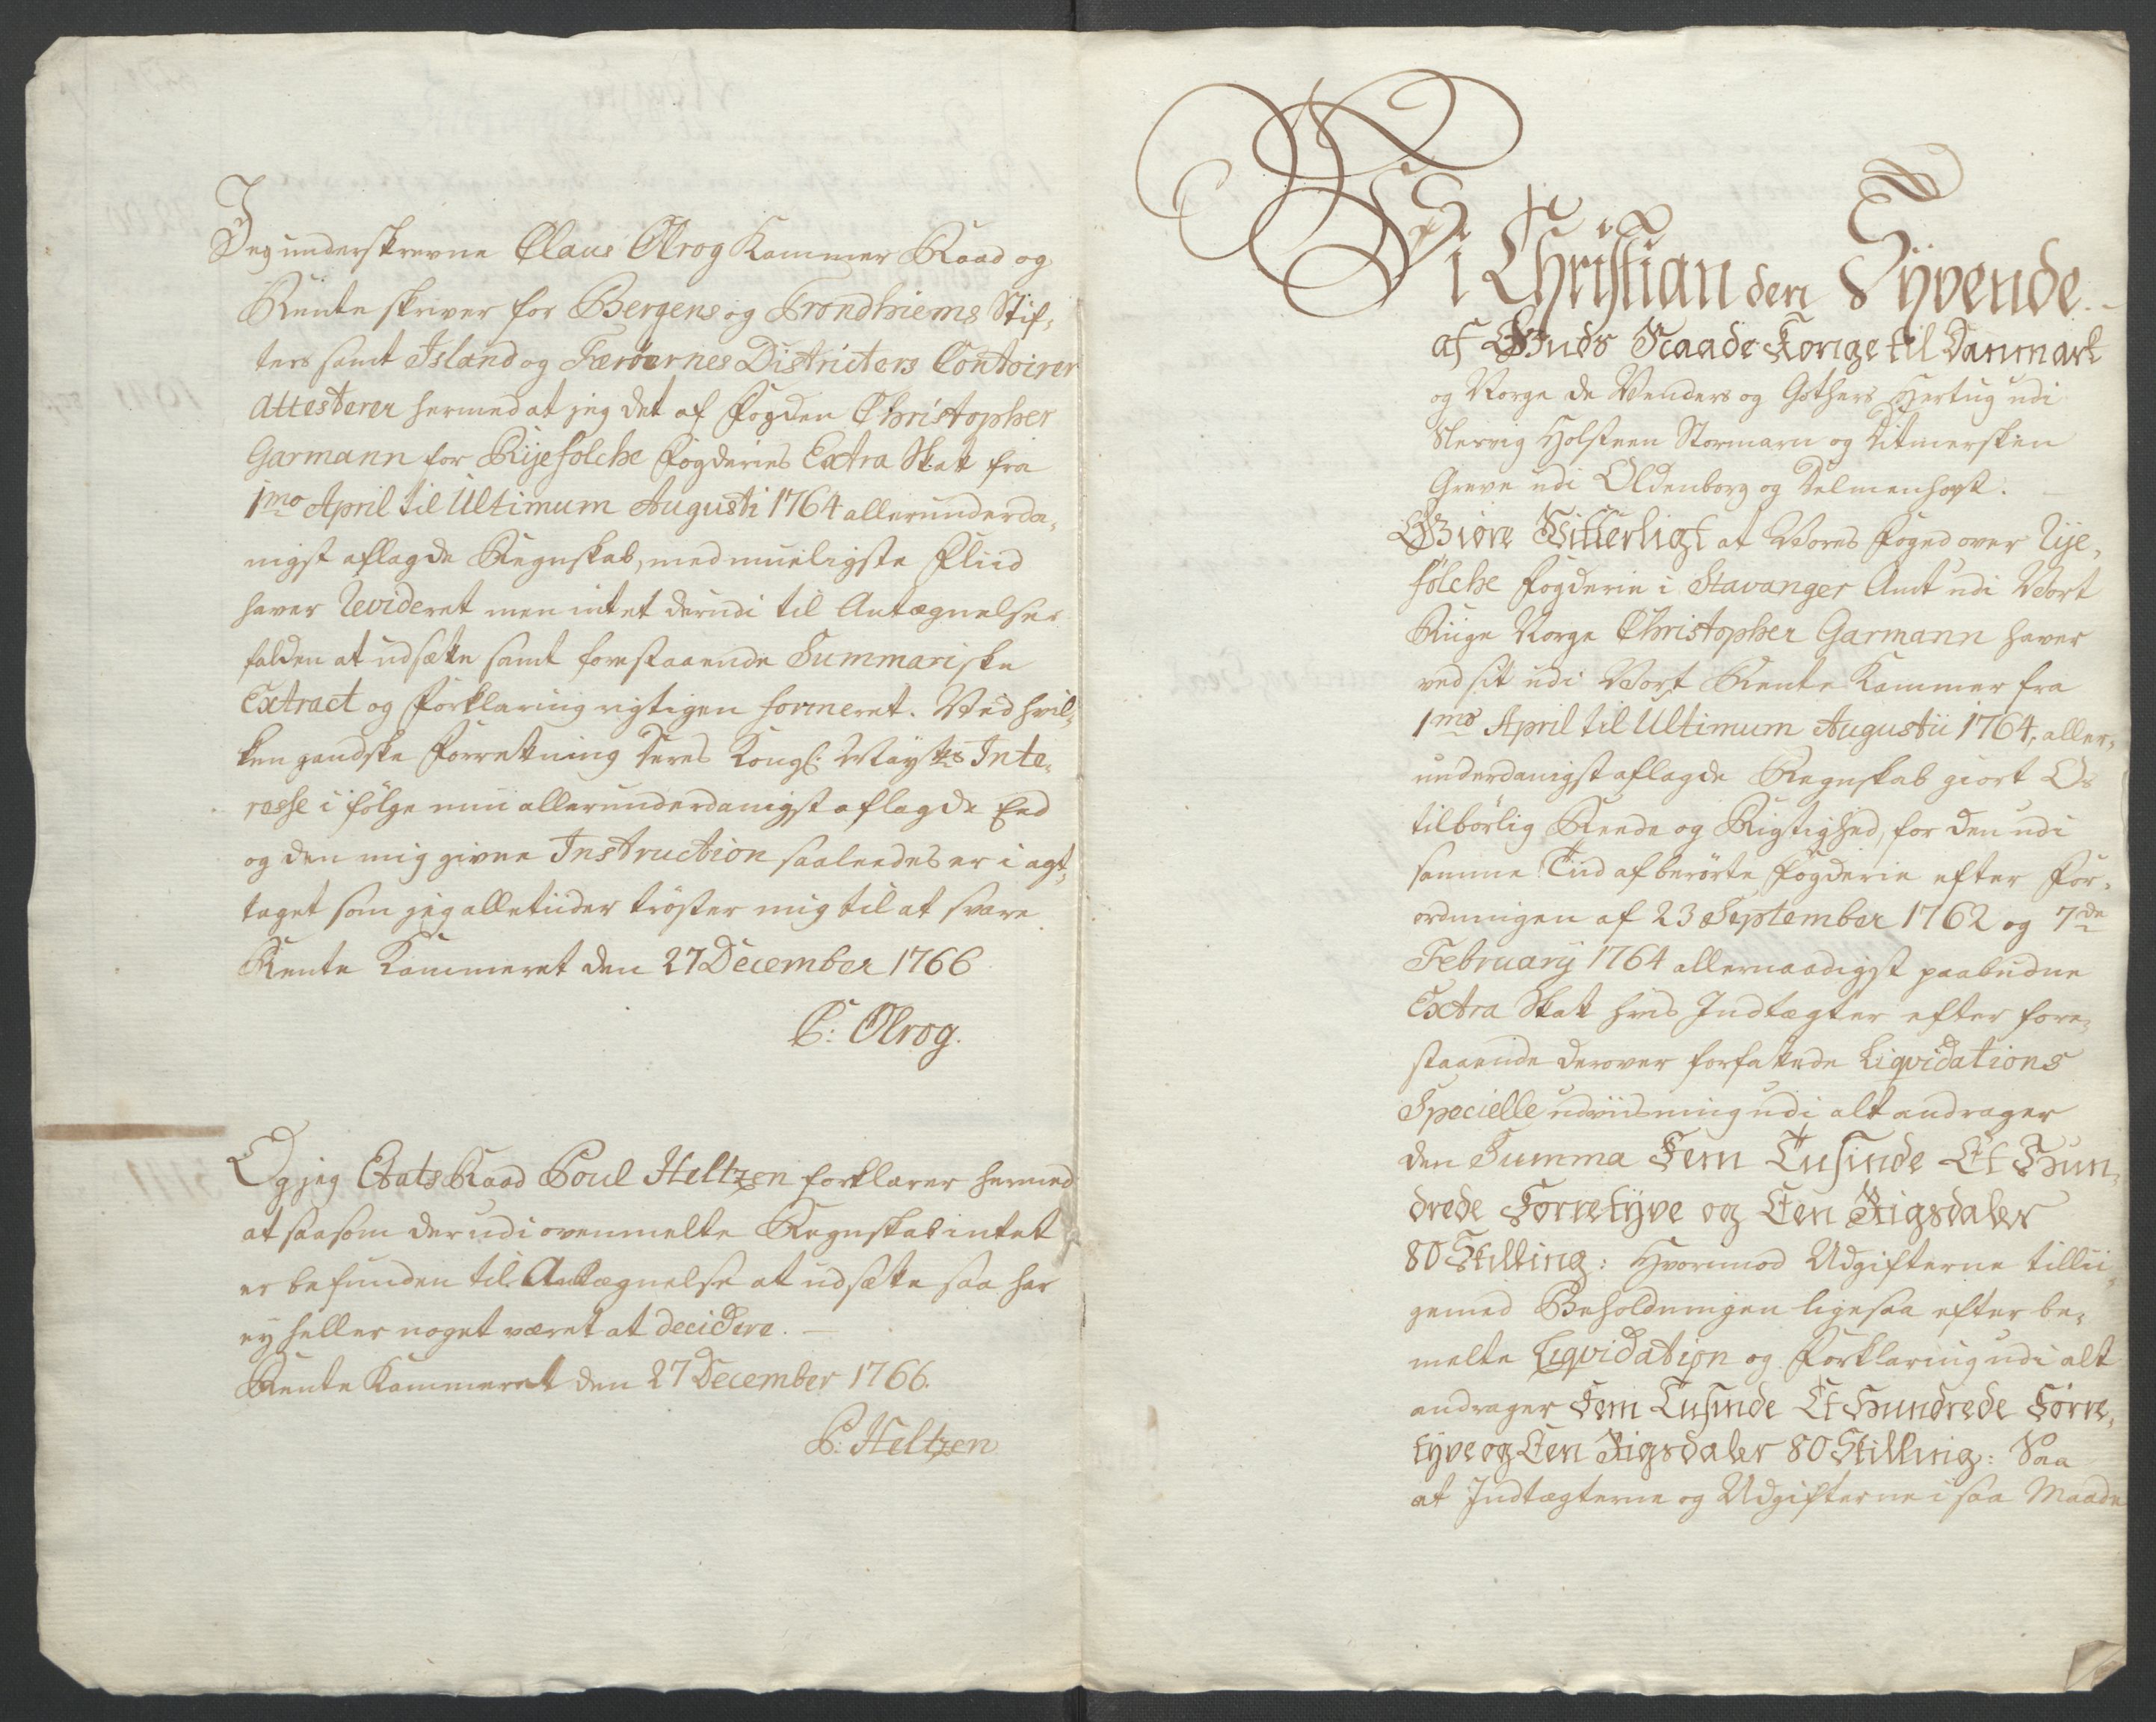 Jeg underskrevne Claus Olrog Kammer Raad og
Rente skriver for Bergens og Trondhiems Stif-
ters samt Island og Færöernes Districters Contoirer
Attesterer hermed at jeg det af Fogden Christopher
Garmann for Ryefolche Fogderies Extra Skat fra
1mo April til Ultimum Augusti 1764 allerunderda-
nigst aflagde Regnskab, med mueligste Fliid
haver Revideret men intet derudi til Antægnelser
falden at udsætte samt forestaaende Summariske
Extract og Forklaring rigtigen formeret. Ved hvil-
ken gandske Forretning Deres Kongl: Mayts Inte-
resse i følge min allerunderdanigst aflagde Eed
og den mig givne Instruction saaledes er i agt-
taget som jeg alletiider trøster mig til at svare
Rente Kammeret den 27 December 1766
C: Olrog.
Og jeg Etats Raad Poul Heltzen forklarer hermed
at saasom derudi ovenmelte Regnskab intet
er befunden til Antægnelse at udsætte saa har
ey heller noget været at decidere.
Rente Kammeret den 27 December 1766.
P: Heltzen
Vi Christian den Syvende
af Guds Naade Konge til Danmark
og Norge de Venders og Gothers Hertug udi
Slesvig Holsteen Stormarn og Ditmersken
Greve udi Oldenborg og Delmenhorst.
Giøre Vitterligt at Vores Foged over Rye-
fölche Fogderie i Stavanger Amt udi Vort
Riige Norge Christopher Garmann haver
ved sit udi Vort Rente Kammer fra
1mo April til Ultimum Augustii 1764, aller-
underdanigst aflagde Regnskab giort Os
tilbörlig Reede og Rigtighed, for den udi
samme Tiid af berörte Fogderie efter For-
ordningen af 23 September 1762 og 7de
February 1764 allernaadigst paabudne
Extra Skat hvis Indtægter efter fore-
staaende derover forfattede Liqvidations
Specielle udviisning udi alt andrager
den Summa Fem Tusinde Et Hun-
drede Førretyve og Een Rigsdaler
80 Skilling: Hvorimod Udgifterne tillii-
gemed Beholdningen ligesaa efter be-
melte Liqvidation og Forklaring udi alt
andrager Fem Tusinde Et Hundrede Førre-
tyve og Een Rigsdaler 80 Skilling: Saa
at Indtægterne og Udgifterne i saa Maade